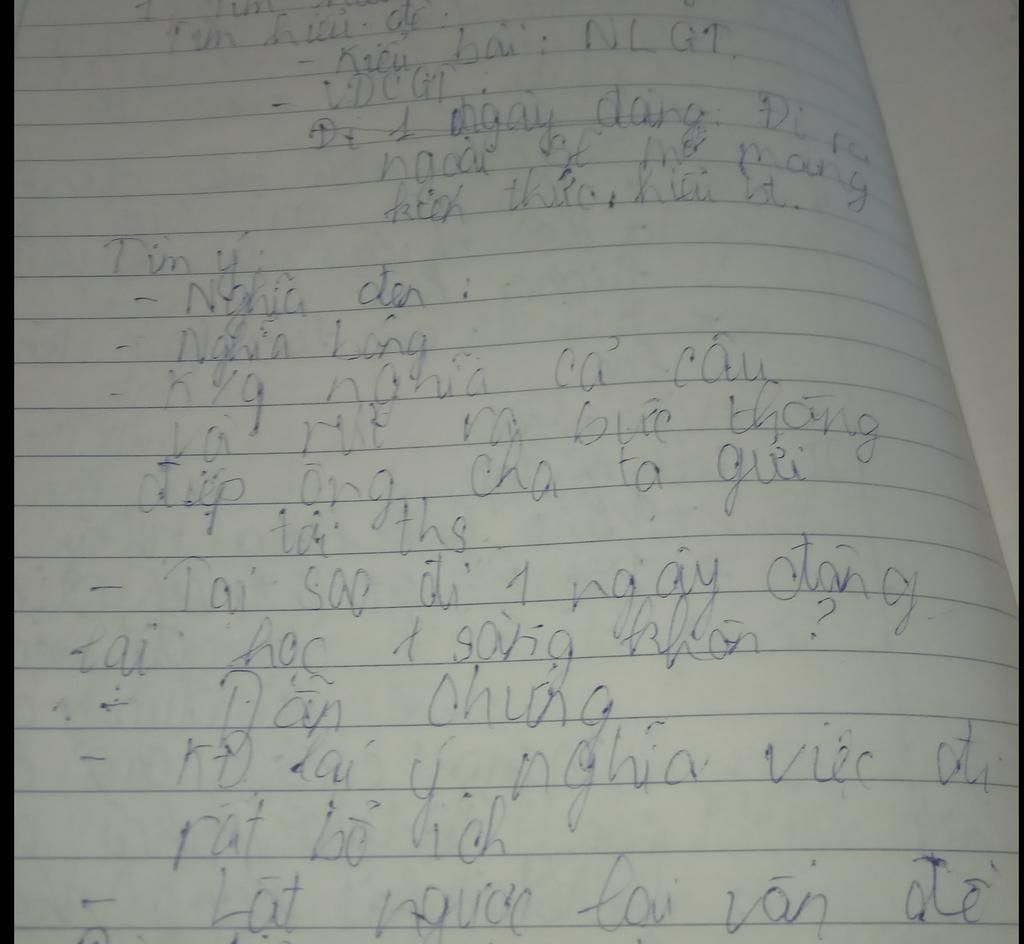 Tìm hiểu đề:
- Kiểu bài: NLGT.
- VDCGT:
Đi 1 ngày đàng: Đi ra
ngoài mở mang
kiến thức, hiểu bt.
Tìm ý:
- Nghĩa đen:
- Nghĩa bóng
- nghĩa cả câu
và rút ra bức thông
điệp ông cha ta gửi
tới
- Tại sao đi 1 ngày đàng
lại học 1 sàng khôn?
- Dẫn chứng
- KĐ lại ý nghĩa việc đi
rất bổ ích
- Lật ngược lại vấn đề